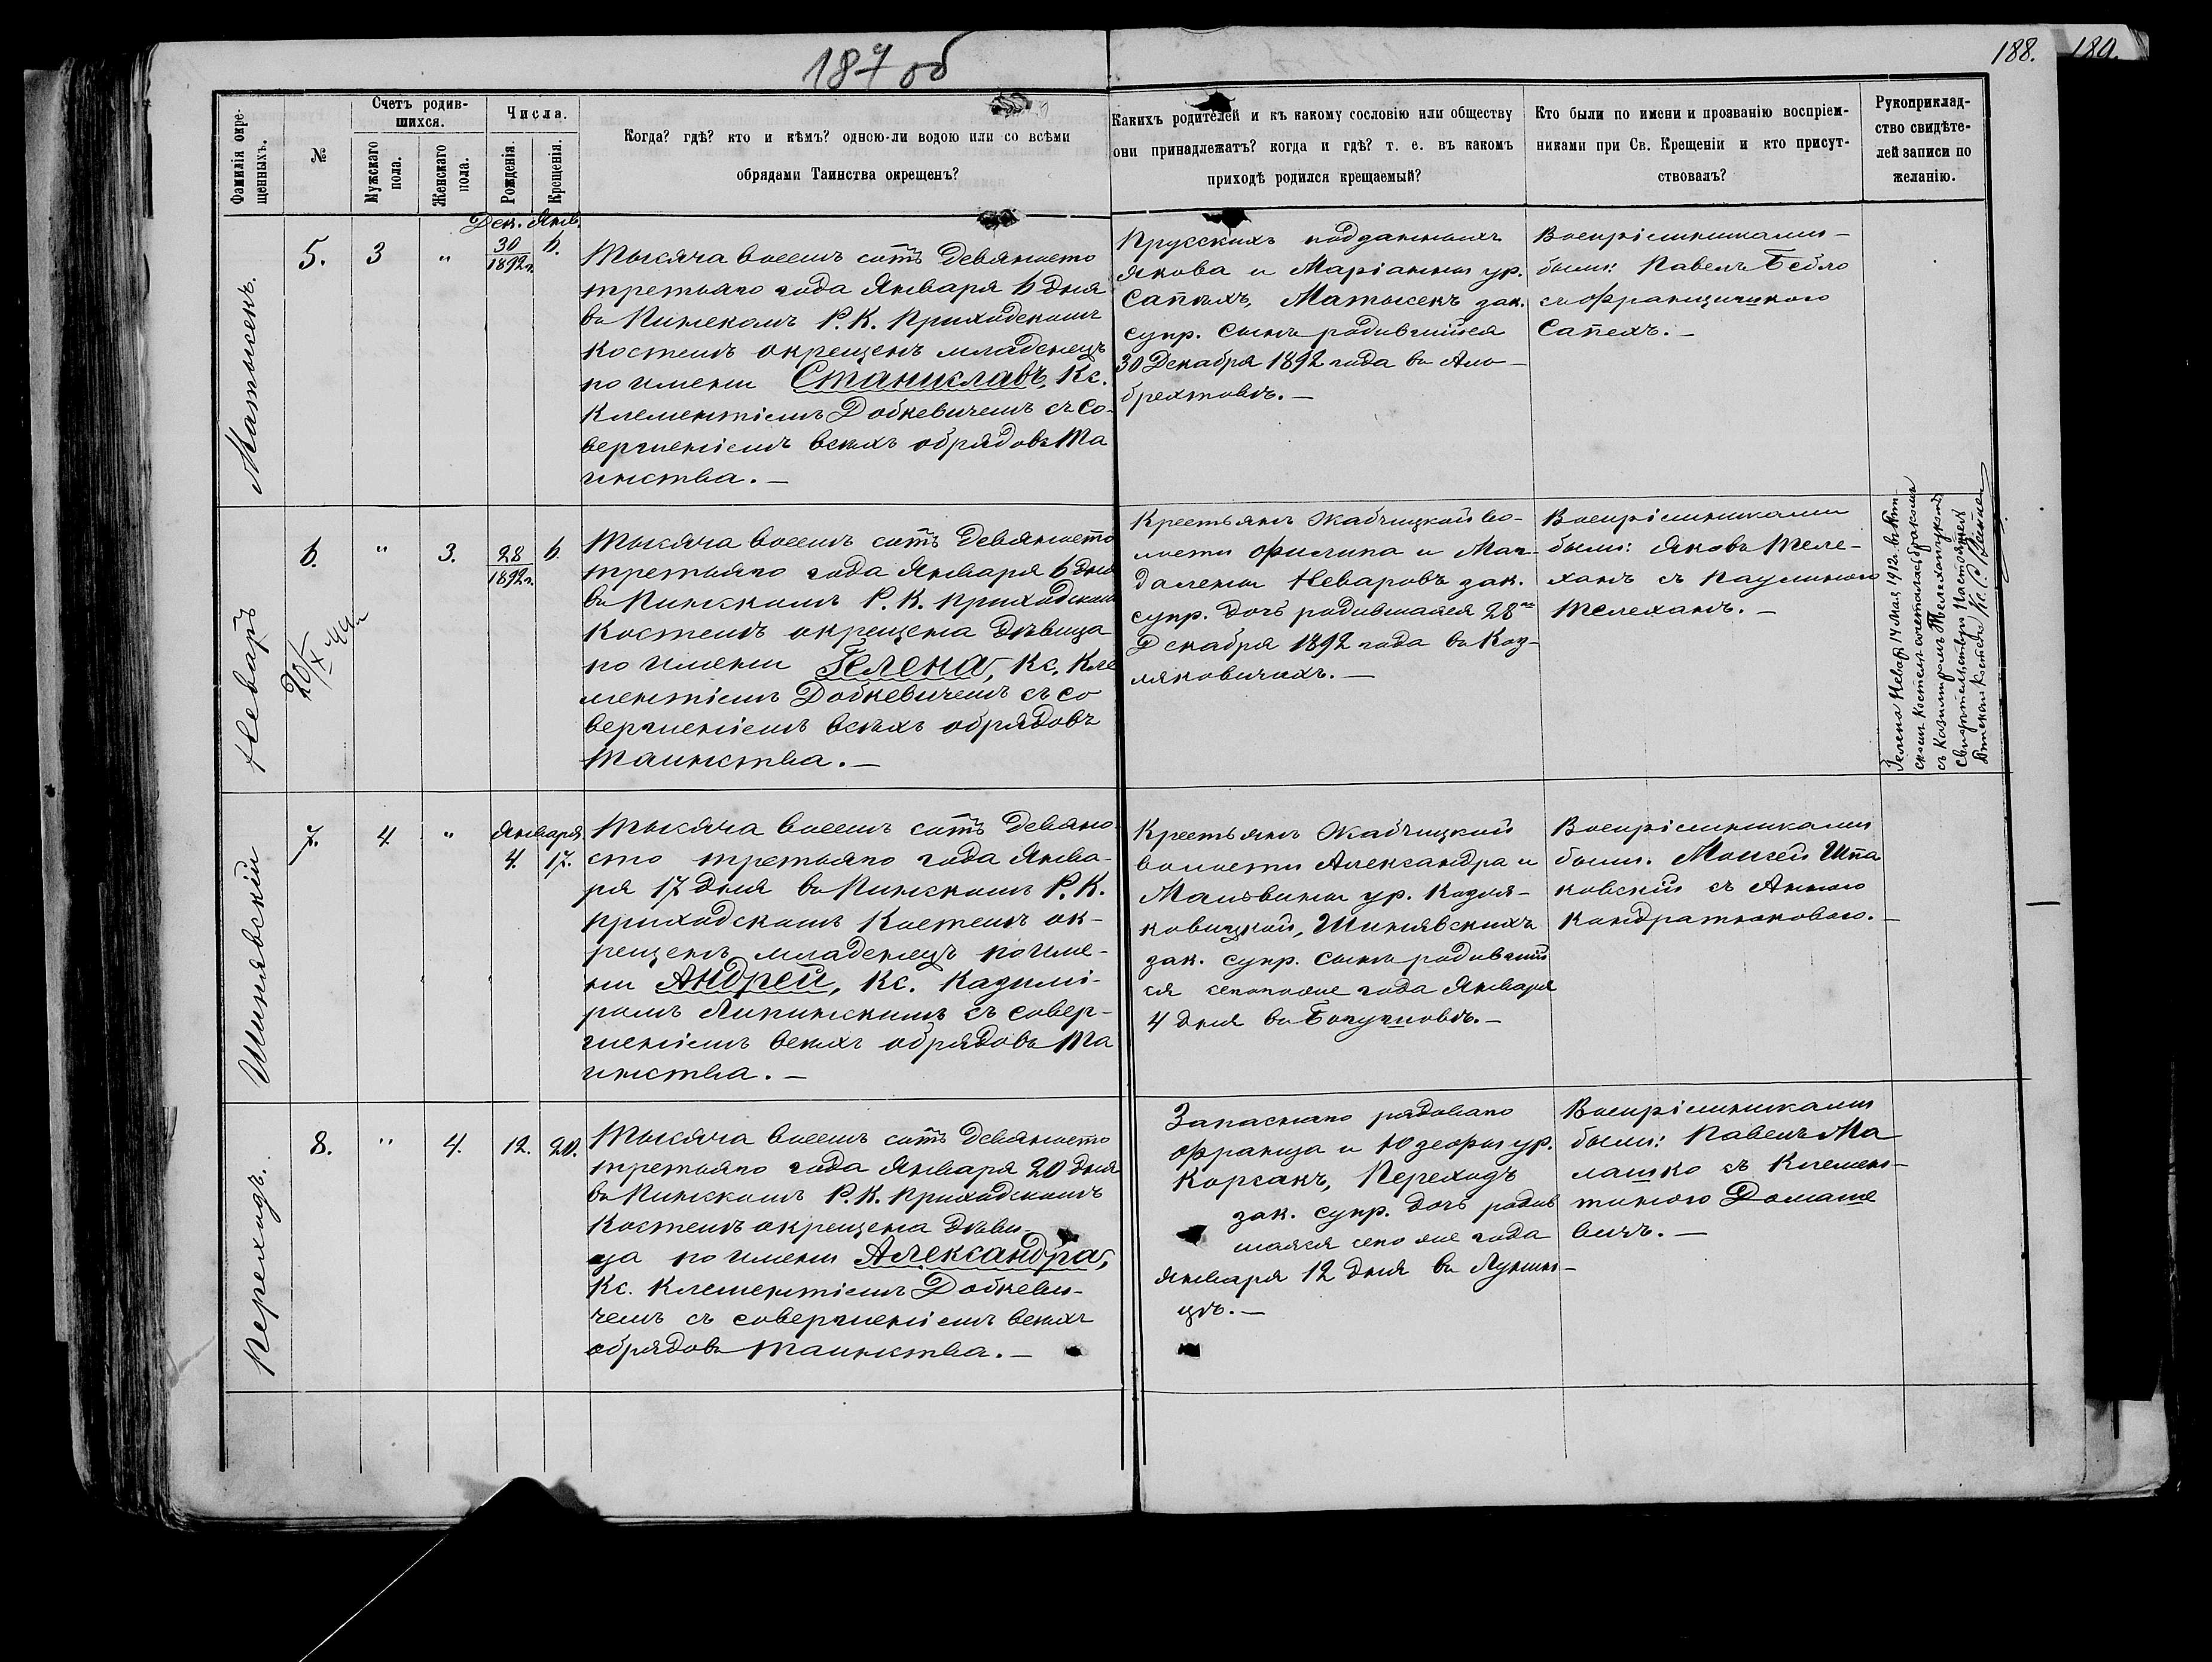 187 об
188.
180.
Фамилія окре-
щенныхъ.
№
Счетъ родив-
шихся.
Мужскаго
пола.
Женскаго
пола.
Числа.
Рожденія.
Крещенія.
Когда? гдѣ? кто и кѣмъ? одною-ли водою или со всѣми
обрядами Таинства окрещенъ?
Какихъ родителей и къ какому сословію или обществу
они принадлежатъ? когда и гдѣ? т. е. въ какомъ
приходѣ родился крещаемый?
Кто были по имени и прозванію воспріем-
никами при Св. Крещеніи и кто присут-
ствовалъ?
Рукоприклад-
ство свидѣте-
лей записи по
желанію.
Матысекъ.
5.
3
"
Дек. Янв.
30
1892г.
6.
Тысяча восемъ сотъ девяносто
третьяго года Января 6 дня
въ Пинскомъ Р. К. Приходскомъ
Костелѣ окрещенъ младенецъ
по имени Станиславъ, Кс.
Клементіемъ Добкевичемъ съ со-
вершеніемъ всѣхъ обрядовъ Та
инства. —
Прусскихъ подданныхъ
Якова и Маріанны ур.
Сапѣхъ, Матысекъ зак.
супр. сынъ родившійся
30 Декабря 1892 года въ Аль-
брехтовѣ. —
Воспріемниками —
были: Павелъ
съ Францишкою
Сапехъ. —
Неваръ
20/IX 44 г
6.
"
3.
28
1892г.
6
Тысяча восемъ сотъ девяносто
третьяго года Января 6 дня
въ Пинскомъ Р. К. Приходскомъ
Костелѣ окрещена дѣвица
по имени Гелена, Кс. Кле
ментіемъ Добкевичемъ съ со
вершеніемъ всѣхъ обрядовъ
Таинства. —
Крестьянъ Жабчицкой во-
лости Филипа и Маг-
далены Неваровъ зак.
супр. дочь родившаяся 28го
Декабря 1892 года въ Коз-
ляковичахъ. —
Воспріемниками
были: Яковъ Теле-
ханъ съ Паулиною
Телеханъ. —
Гелена Неваръ 14 Мая 1912 въ
скомъ костелѣ сочеталась бракомъ
съ Казимиромъ
свидѣтельствую Настоятель
костела Кс.
Шинявскій
7.
4
"
Января
4.
17.
Тысяча восемъ сотъ девяно-
сто третьяго года Янва-
ря 17 дня въ Пинскомъ Р. К.
Приходскомъ Костелѣ ок-
рещенъ младенецъ по име-
ни Андрей, Кс. Казимі-
ромъ Липинскимъ съ совер-
шеніемъ всѣхъ обрядовъ Та
инства. —
Крестьянъ Жабчицкой
волости Александра и
Мальвины ур. Козля-
ковицкой, Шинявскихъ
зак. супр. сынъ родивший
ся сегоже года Января
4 дня въ Богушовѣ. —
Воспріемниками
были. Моисей Шпа
ковскій съ Анною
Кондратюковою. —
Переходъ.
8.
"
4.
12.
20.
Тысяча восемъ сотъ девяносто
третьяго года Января 20 дня
въ Пинскомъ Р. К. Приходскомъ
Костелѣ окрещена дѣви-
ца по имени Александра,
Кс. Клементіемъ Добкеви-
чемъ съ совершеніемъ всѣхъ
обрядовъ Таинства. —
Запаснаго рядоваго
Франца и Юзефы ур.
Корсакъ, Переходъ
зак. супр. дочь родив
шаяся сего же года
Января 12 дня въ Лунин-
цѣ. —
Воспріемниками
были: Павелъ Ма
лашко съ Клемен-
тиною Домаше
вичъ. —